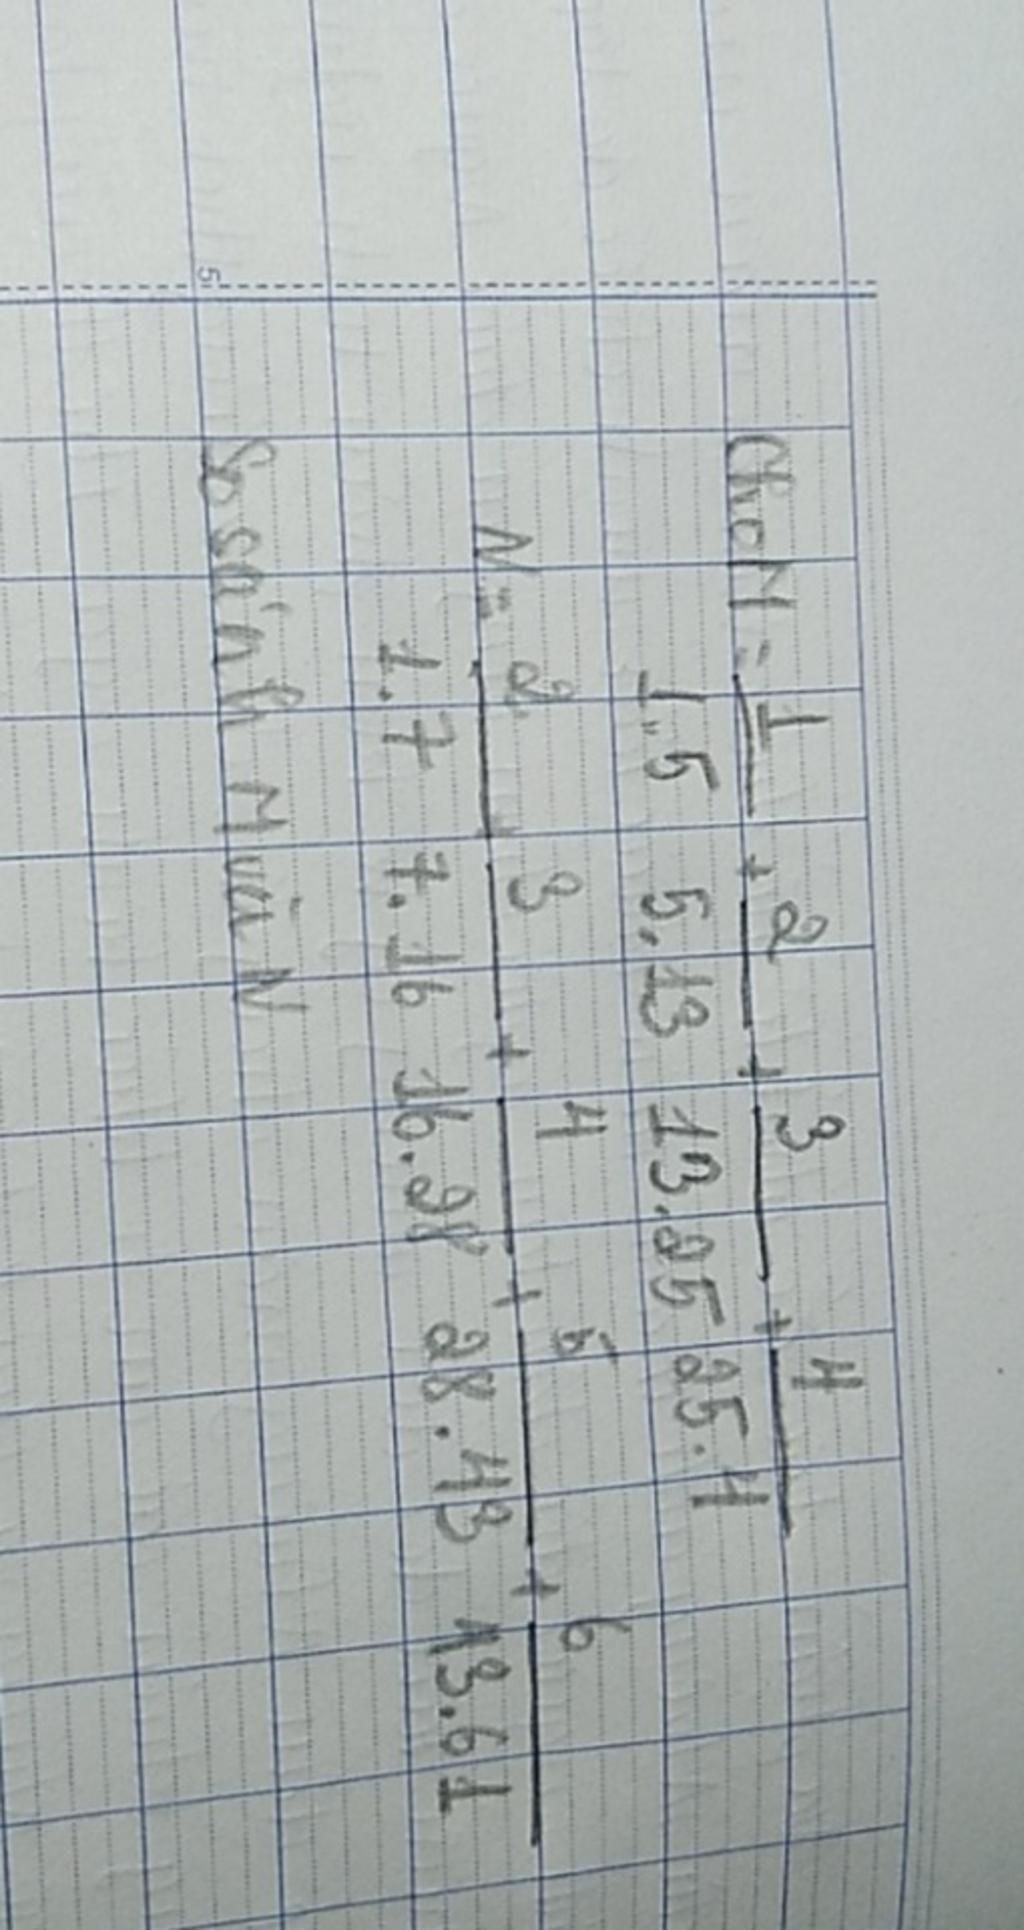 Cho M = 1/1.5 + 2/5.13 + 3/13.25 + 4/25.4
N = 2/1.7 + 3/7.16 + 4/16.28 + 5/28.43 + 6/43.61
So sánh M và N
5